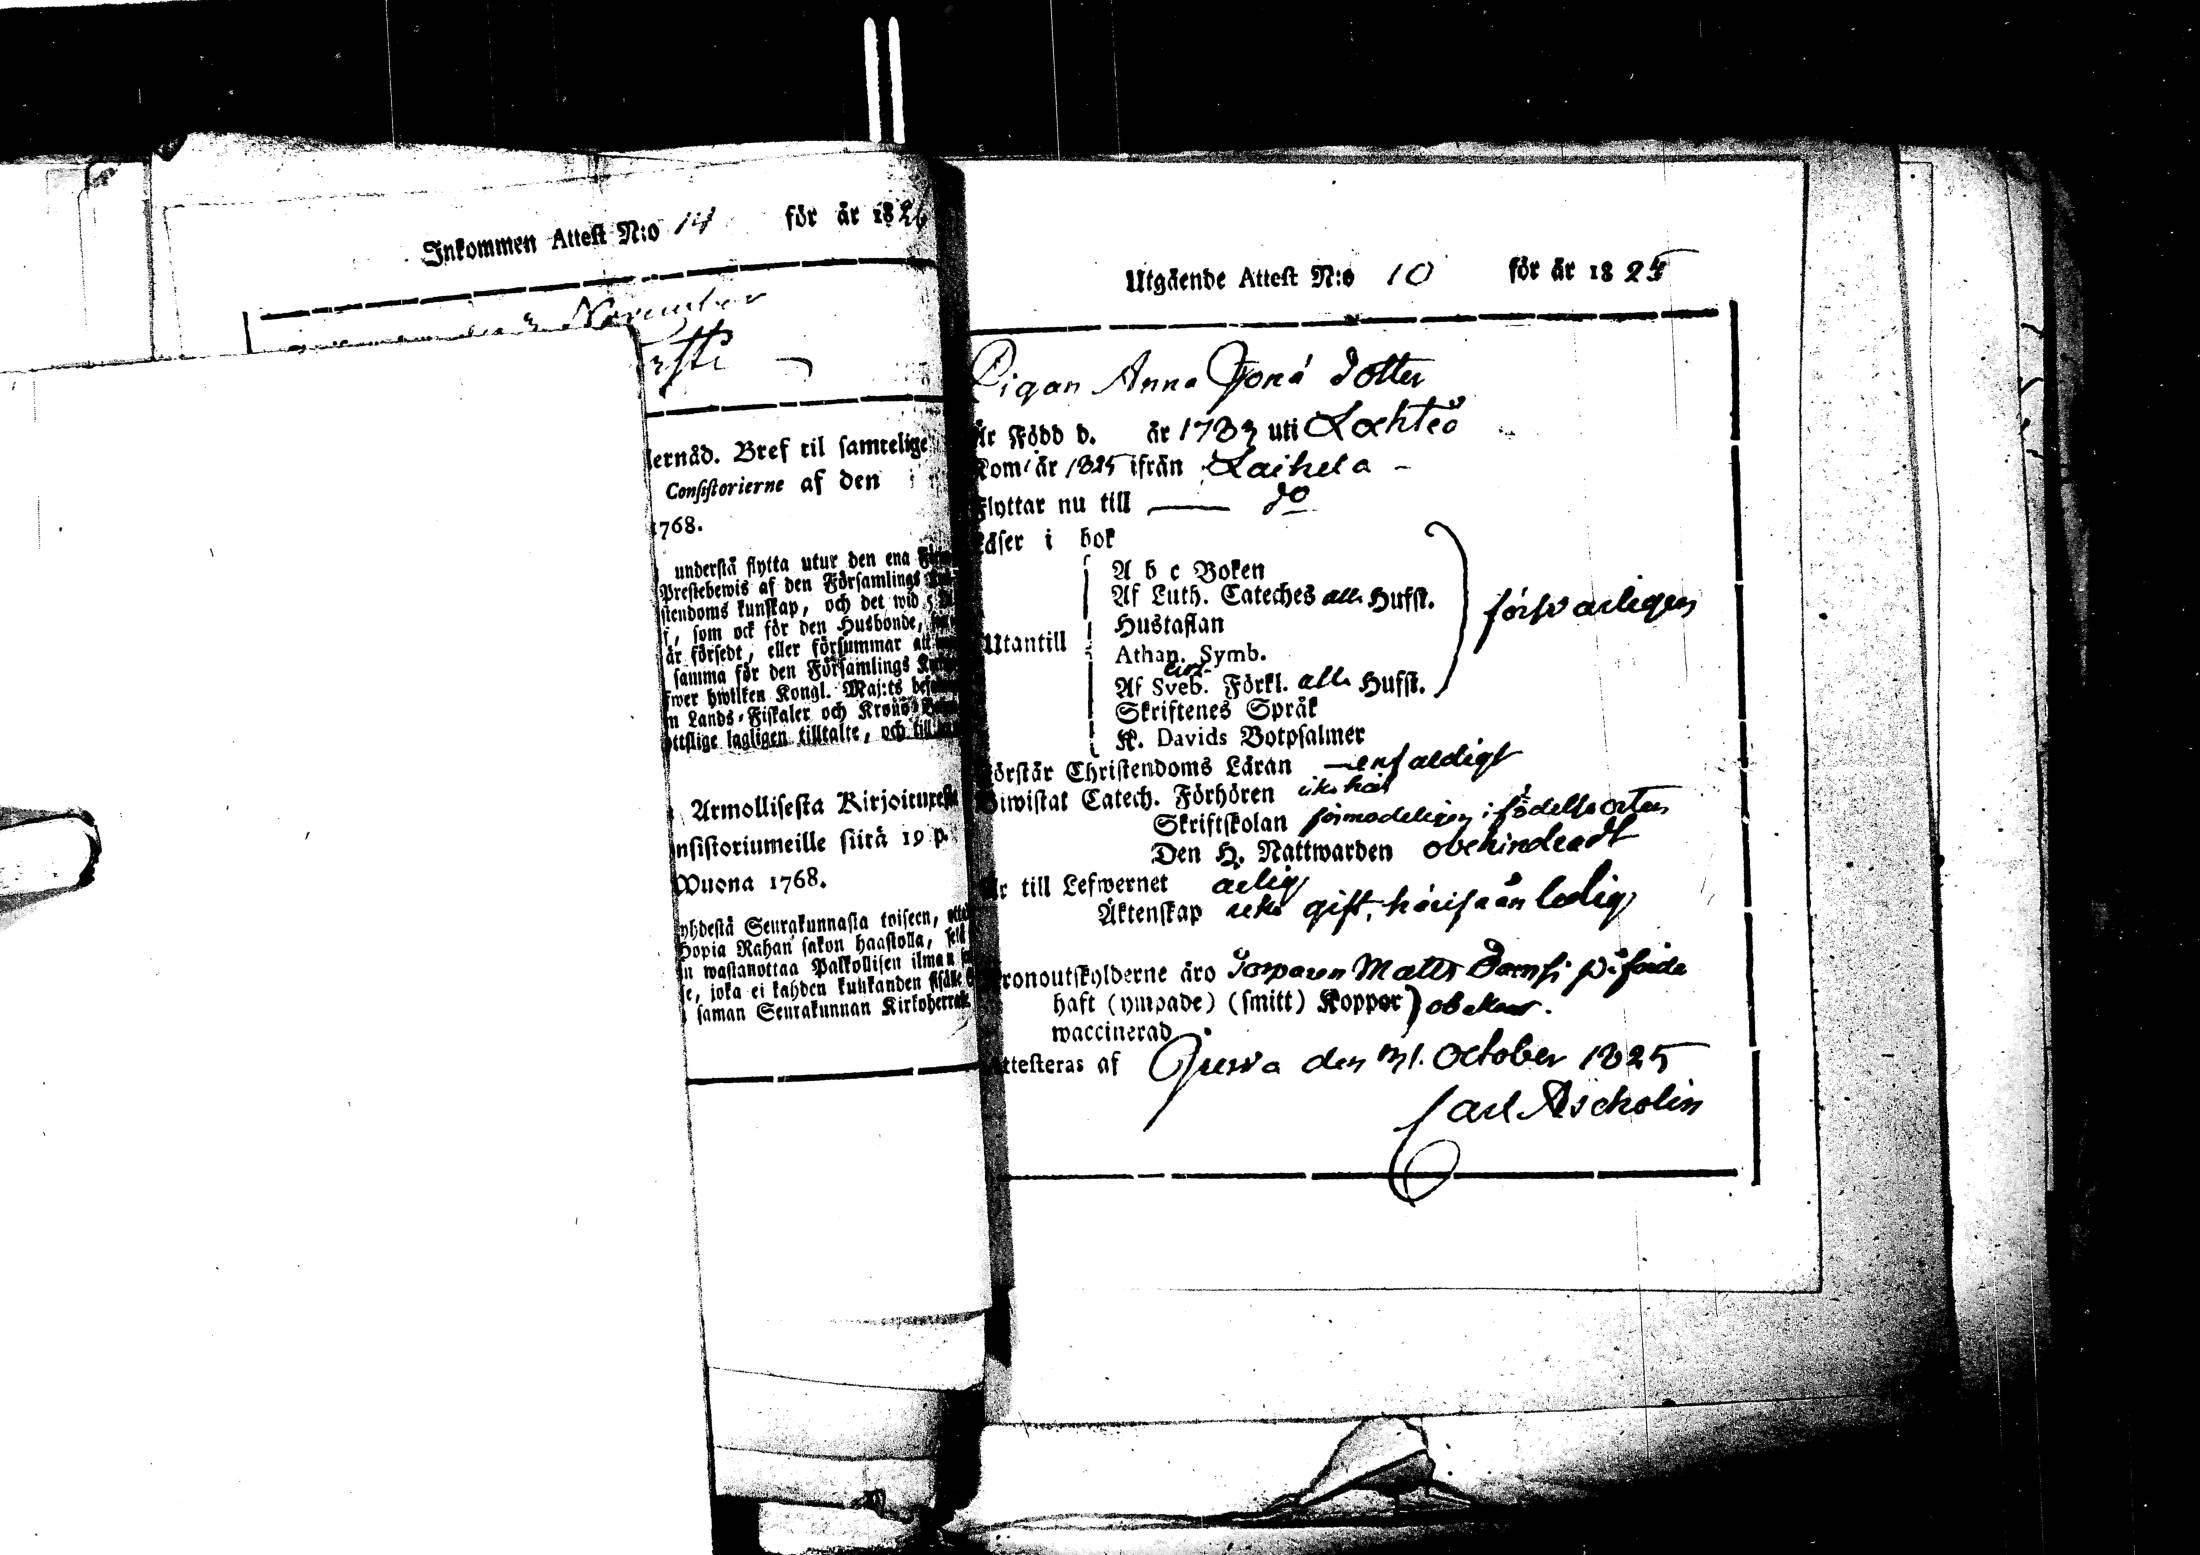 Inkommen Attest N:o 14 för år 1826
November
ernåd. Bref til samtelige
Consistorierne af den
1768.
understå flytta utur den ena
Prestebewis af den Församlings
stendoms kunskap, och det wid
som ock för den Husbonde,
är försedt, eller försummar att
samma för den Församlings
fwer hwilken Kongl. Maj:ts
n Lands-Fiskaler och Krono
ttslige lagligen tilltalte, och till
Armollisesta Kirjoituxesta
nsistoriumeille siitä 19 p.
Wuona 1768.
yhdestä Seurakunnasta toiseen,
Hopia Rahan sakon haastolla,
n wastanottaa Palkollisen ilman
e, joka ei kahden kuukanden sisälle
saman Seurakunnan Kirkoherralle
Utgående Attest N:o 10 för år 1825
Pigan Anna Jona dotter
Är Född d. år 1783 uti Lochteå
Kom år 1825 ifrån Laihela –
Flyttar nu till —— do
Läser i bok
A b c Boken
Af Luth. Cateches alla Hufst.
Hustaflan
Utantill
Athan. Symb.
Af Sveb. Förkl. alla Hufst.
försvarligen
Skriftenes Språk
K. Davids Botpsalmer
Förstår Christendoms Läran – enfaldigt
Biwistat Catech. Förhören icke här
Skriftskolan förmodeligen i födelseorten
Den H. Nattwarden obehindradt
Är till Lefwernet ärlig
Äktenskap icke gift, härifrån ledig
Kronoutskylderne äro Matts
haft (ympade) (smitt) Koppor) obekant.
waccinerad
Attesteras af Jurva den 31. October 1825
Carl Ascholin